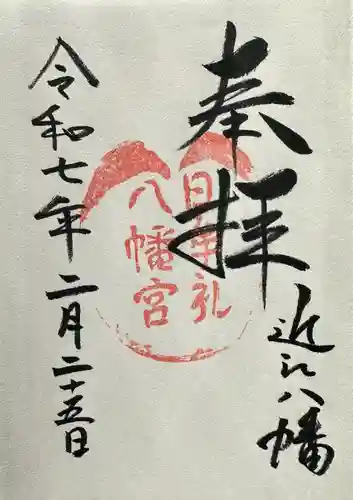 奉拝
近江八幡
日牟礼
八幡宮
令和七年二月二十五日